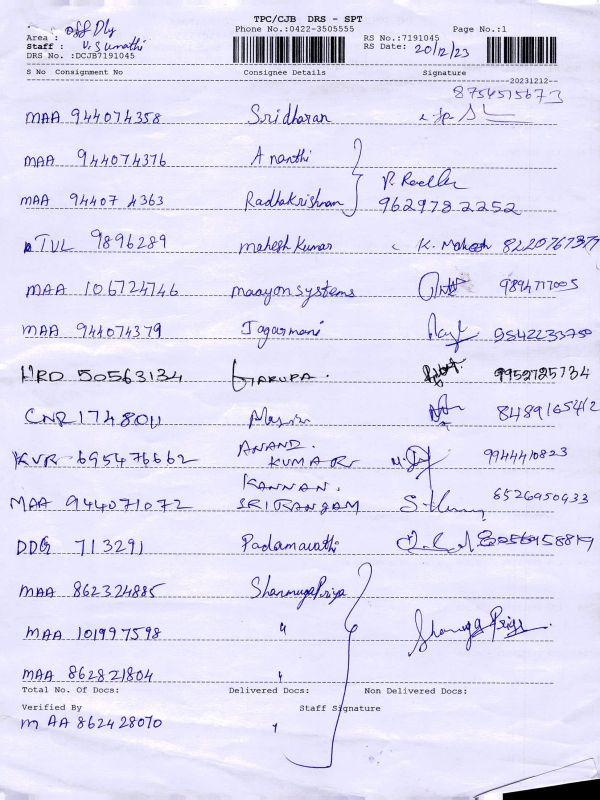 TPC/CJB DRS - SPT
Area : off Dly Phone No.:0422-3505555 RS No.:7191045 Page No.:1
Staff : V. Sumathi RS Date: 20/12/23
DRS No. :DCJB7191045
S No Consignment No Consignee Details Signature
20231212
8754515673
MAA 944074358 Sridharan
MAA 944074376 Ananthi
MAA 944074363 Radhakrishnan 9629782252
TVL 9896289 Mahesh Kumar K. Mahesh 8220767377
MAA 106724746 maayon systems 9894717005
MAA 944074379 Jagarmani 9542233750
HRD 50563134 9952725734
CNR 1748011 8489165412
KVR 695476662 ANAND. KUMAR 9944410823
MAA 944071072 KANNAN. SRIRANGAM 6526950933
DDG 713291 Padamavathi 8056958819
MAA 862324885 Shanmuga Priya
MAA 101997598 " Shanmuga Priya
MAA 862821804 "
Total No. Of Docs: Delivered Docs: Non Delivered Docs:
Verified By Staff Signature
MAA 862428070 "